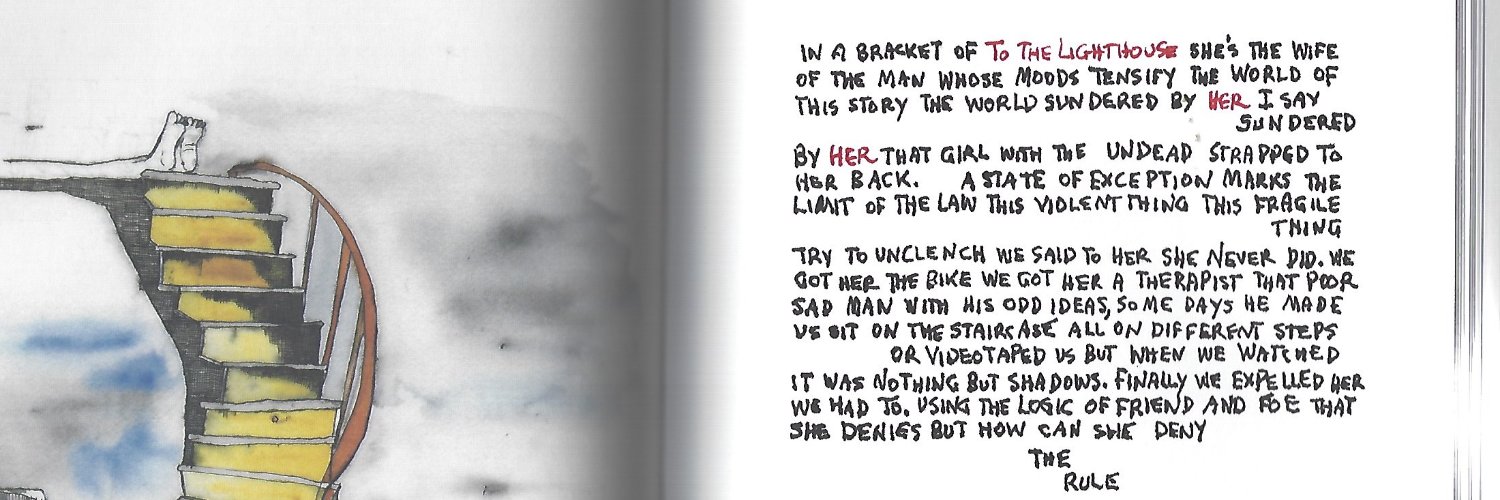 IN A BRACKET OF TO THE LIGHTHOUSE SHE'S THE WIFE
OF THE MAN WHOSE MOODS TENSIFY THE WORLD OF
THIS STORY THE WORLD SUNDERED BY HER I SAY
SUNDERED
BY HER THAT GIRL WITH THE UNDEAD STRAPPED TO
HER BACK. A STATE OF EXCEPTION MARKS THE
LIMIT OF THE LAW THIS VIOLENT THING THIS FRAGILE
THING
TRY TO UNCLENCH WE SAID TO HER SHE NEVER DID. WE
GOT HER THE BIKE WE GOT HER A THERAPIST THAT POOR
SAD MAN WITH HIS ODD IDEAS, SOME DAYS HE MADE
US SIT ON THE STAIRCASE ALL ON DIFFERENT STEPS
OR VIDEOTAPED US BUT WHEN WE WATCHED
IT WAS NOTHING BUT SHADOWS. FINALLY WE EXPELLED HER
WE HAD TO. USING THE LOGIC OF FRIEND AND FOE THAT
SHE DENIES BUT HOW CAN SHE DENY
THE
RULE